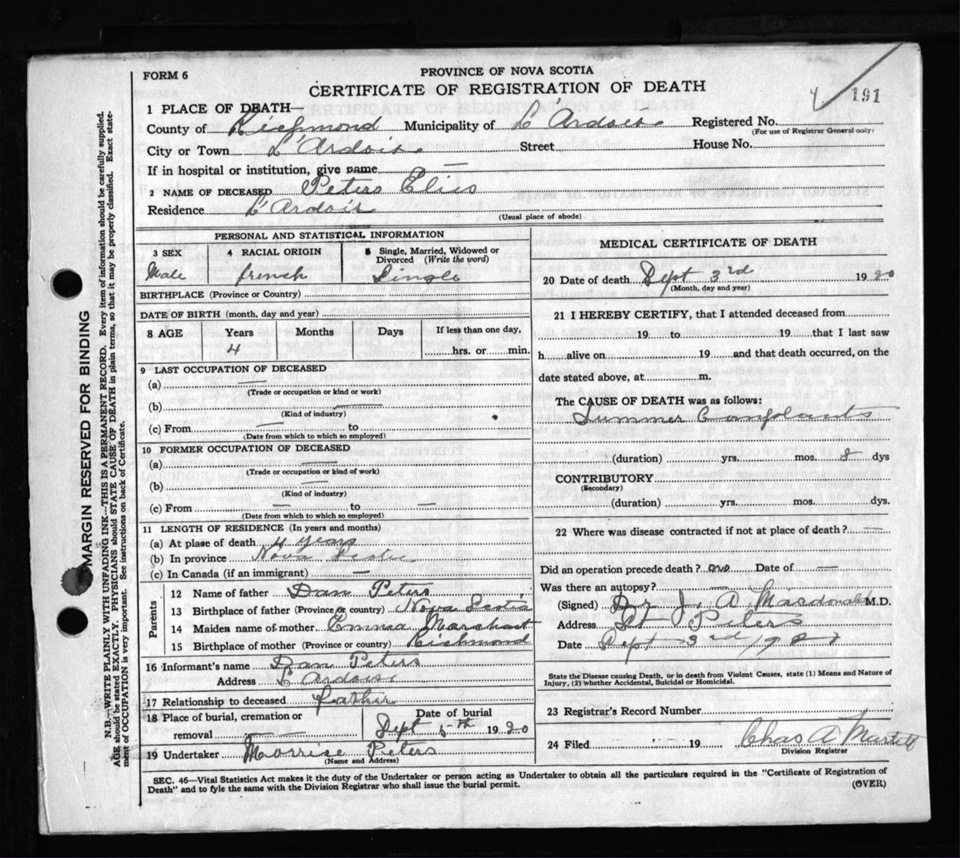 FORM 6
PROVINCE OF NOVA SCOTIA
CERTIFICATE OF REGISTRATION OF DEATH
191
1 PLACE OF DEATH—
County of Richmond Municipality of L'Ardoise Registered No.
(For use of Registrar General only)
City or Town L'Ardoise Street House No.
If in hospital or institution, give name —
2 NAME OF DECEASED Peters Elias
Residence L'Ardoise
(Usual place of abode)
PERSONAL AND STATISTICAL INFORMATION
3 SEX 4 RACIAL ORIGIN 5 Single, Married, Widowed or Divorced (Write the word)
Male french Single
BIRTHPLACE (Province or Country)
DATE OF BIRTH (month, day and year)
8 AGE Years Months Days If less than one day,
4 hrs. or min.
9 LAST OCCUPATION OF DECEASED
(a) —
(Trade or occupation or kind or work)
(b) —
(Kind of industry)
(c) From — to —
(Date from which to which so employed)
10 FORMER OCCUPATION OF DECEASED
(a) —
(Trade or occupation or kind of work)
(b) —
(Kind of industry)
(c) From — to —
(Date from which to which so employed)
11 LENGTH OF RESIDENCE (In years and months)
(a) At place of death 4 years
(b) In province Nova Scotia
(c) In Canada (if an immigrant) —
Parents
12 Name of father Dan Peters
13 Birthplace of father (Province or country) Nova Scotia
14 Maiden name of mother Emma Marchant
15 Birthplace of mother (Province or country) Richmond
16 Informant's name Dan Peters
Address L'Ardoise
17 Relationship to deceased father
18 Place of burial, cremation or Date of burial
removal — Sept 5th 1920
19 Undertaker Morrise Peters
(Name and Address)
MEDICAL CERTIFICATE OF DEATH
20 Date of death Sept 3rd 1920
(Month, day and year)
21 I HEREBY CERTIFY, that I attended deceased from
19 to 19 that I last saw
h alive on 19 and that death occurred, on the
date stated above, at m.
The CAUSE OF DEATH was as follows:
Summer Complaints
(duration) yrs. mos. 8 dys
CONTRIBUTORY
(Secondary)
(duration) yrs. mos. dys.
22 Where was disease contracted if not at place of death? —
Did an operation precede death? no Date of —
Was there an autopsy? —
(Signed) Dr J. A Macdonald M.D.
Address St Peters
Date Sept 3rd
State the Disease causing Death, or in death from Violent Causes, state (1) Means and Nature of
Injury, (2) whether Accidental, Suicidal or Homicidal.
23 Registrar's Record Number
24 Filed 19 Chas A Martell
Division Registrar
SEC. 46—Vital Statistics Act makes it the duty of the Undertaker or person acting as Undertaker to obtain all the particulars required in the "Certificate of Registration of
Death" and to fyle the same with the Division Registrar who shall issue the burial permit.
(OVER)
MARGIN RESERVED FOR BINDING
N.B.—WRITE PLAINLY WITH UNFADING INK—THIS IS A PERMANENT RECORD. Every item of information should be carefully supplied.
AGE should be stated EXACTLY. PHYSICIANS should STATE CAUSE OF DEATH in plain terms, so that it may be properly classified. Exact state-
ment of OCCUPATION is very important. See instructions on back of Certificate.